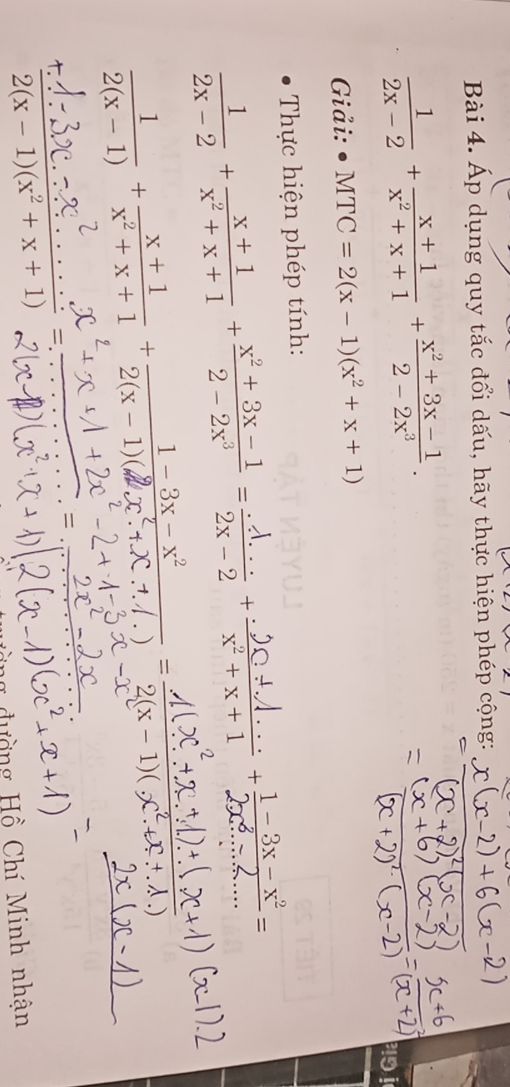 x(x-2)+6(x-2)
Bài 4. Áp dụng quy tắc đổi dấu, hãy thực hiện phép cộng:
= (x+2)²(x-2)
1/(2x - 2) + (x + 1)/(x² + x + 1) + (x² + 3x - 1)/(2 - 2x³).
= (x+6)(x-2)/((x+2)²(x-2)) = (x+6)/(x+2)²
Giải: • MTC = 2(x - 1)(x² + x + 1)
• Thực hiện phép tính:
1/(2x - 2) + (x + 1)/(x² + x + 1) + (x² + 3x - 1)/(2 - 2x³) = 1/(2x - 2) + (x+1)/(x² + x + 1) + (1 - 3x - x²)/(2x³-2) =
1/(2(x - 1)) + (x + 1)/(x² + x + 1) + (1 - 3x - x²)/(2(x - 1)(x²+x+1)) = 1(x²+x+1)+(x+1)(x-1).2/(2(x - 1)(x²+x+1))
+1-3x-x²/(2(x - 1)(x² + x + 1)) = x²+x+1+2x²-2+1-3x-x²/(2(x-1)(x²+x+1)) = 2x²-2x/(2(x-1)(x²+x+1)) = 2x(x-1)
trường đường Hồ Chí Minh nhận